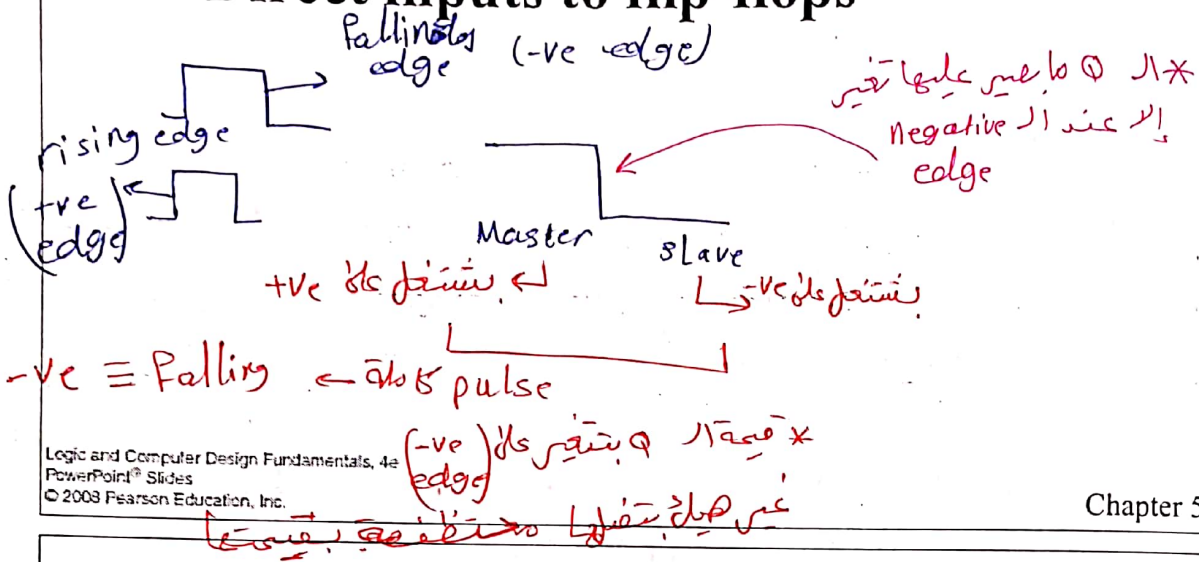 inputs to flip-flops
Falling
edge
(-ve edge)
*ال Q ما بصير عليها تغير
إلا عند ال negative
edge
rising edge
(+ve
edge)
Master
slave
بشتغل على +ve
بشتغل على -ve
-ve ≡ Falling ← كاملة pulse
*قيمة ال Q بتتغير على (-ve
edge)
غير هيك بتضلها محتفظة بقيمتها
Logic and Computer Design Fundamentals, 4e
PowerPoint® Slides
© 2008 Pearson Education, Inc.
Chapter 5